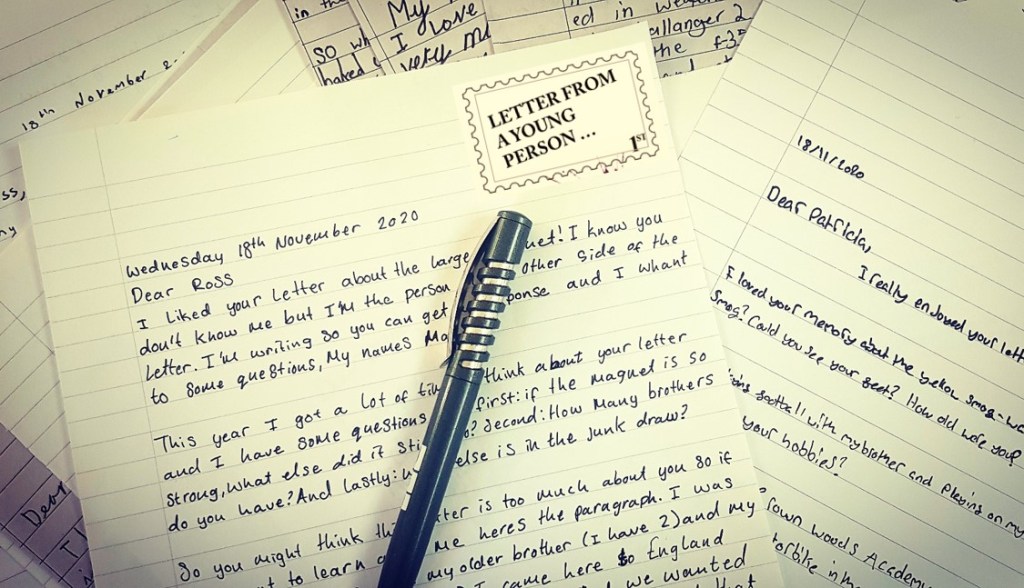 in the
My
I love
very
so
baked
ed in
allanger 2
the f-35
18th November 2
LETTER FROM
A YOUNG
PERSON ...
1ST
Wednesday 18th November 2020
Dear Ross
I liked your letter about the large net! I know you
don't know me but I'm the person other side of the
letter. I'm writing so you can get ponse and I whant
to some questions, My names
This year I got a lot of think about your letter
and I have some questions first: if the magnet is so
strong, what else did it to? Second: How many brothers
do you have? And lastly: else is in the junk draw?
So you might think ter is too much about you so if
nt to learn me heres the paragraph. I was
my older brother (I have 2) and my
I came here to England
we wanted
that
18/11/2020
Dear Patricia,
I really enjoyed your lett
I loved your memory about the yellow smog-
smog? Could you see your feet? How old were you?
with my brother and playing on my
your hobbies?
Town Woods Academy
torbike in the
Dear